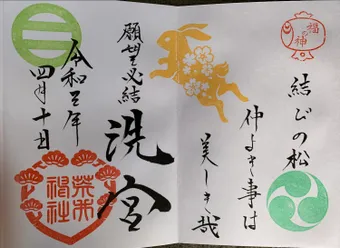 福の神
結びの松
仲よき事は
美しき哉
洗宮
願望必結
令和三年
四月十日
荒井
神社